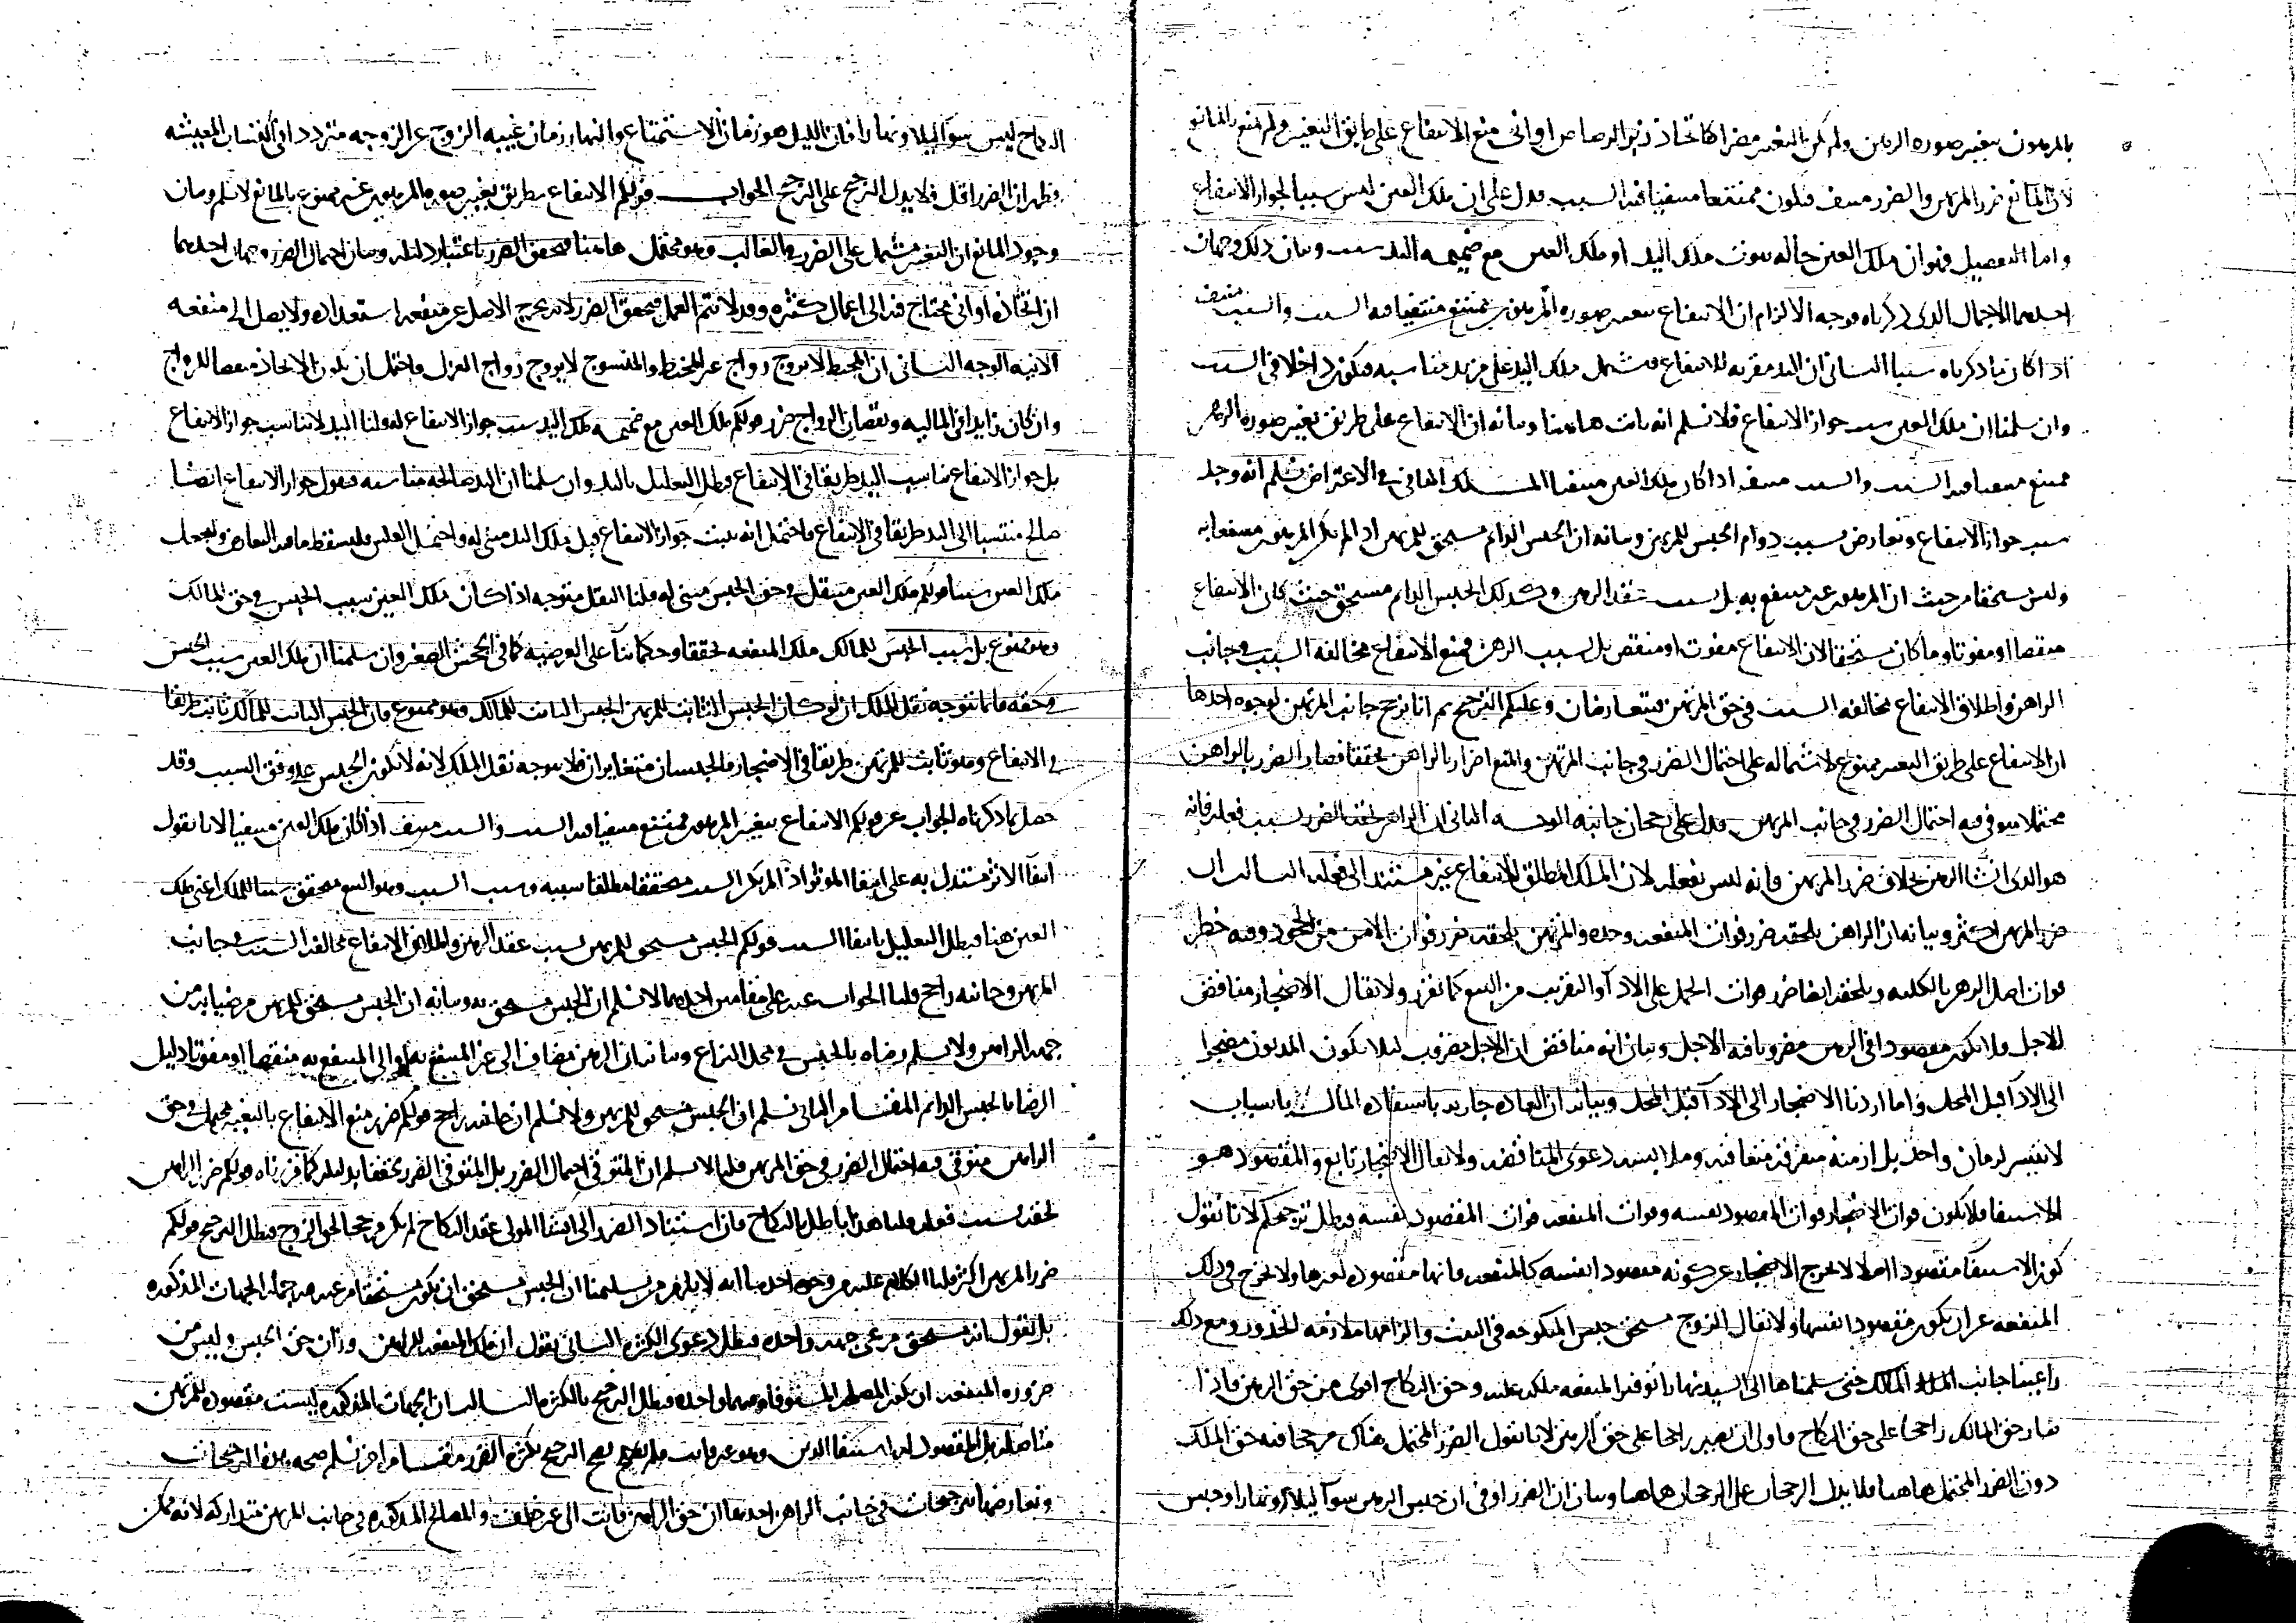 بالمرهون بتغيير صورة الرهن ولم يكن التغيير مضرا كاتخاذ زبر الرصاص اواني منع الانتفاع على طريق التغيير ولم يمنع بالمانع
لان المانع ضرر المرتهن والضرر منتف فيكون ممتنعا منتفيا فيه السبب فدل على ان ملك العين ليس سببا لجواز الانتفاع
واما التفصيل فهو ان ملك العين حالة ثبوت ملك اليد او ملك العين مع ضميمة اليد سبب وبيان ذلك وجهان
احدهما الاجمال الذي ذكرناه ووجه الالزام ان الانتفاع بتغيير صورة المرهون ممتنع منتفيا فيه السبب والسبب منتف
اذا كان ما ذكرناه سببا الثاني ان اليد مقربة للانتفاع فيشتمل ملك اليد على مزيد مناسبة فيكون داخلا في السبب
وان سلمنا ان ملك العين سبب جواز الانتفاع فلا نسلم انه ثابت هاهنا وبيانه ان الانتفاع على طريق تغيير صورة الرهن
ممتنع منتفيا فيه السبب والسبب منتف اذا كان ملك العين منتفيا المسلك الثاني في الاعتراض نسلم انه وجد
سبب جواز الانتفاع وتعارض بسبب دوام الحبس للمرتهن وبيانه ان الحبس الدائم مستحق للمرتهن اذا لم يكن المرهون منتفعا به
وليس مستحقا من حيث ان المرهون غير منتفع به بل بسبب عقد الرهن وكذلك الحبس الدائم مستحق حيث كان الانتفاع
منقصا او مفوتا وما كان مستحقا لان الانتفاع مفوت او منقص بل بسبب الرهن فمنع الانتفاع مخالفة السبب في جانب
الراهن واطلاق الانتفاع مخالفة السبب في حق المرتهن فيتعارضان وعليكم الترجيح ثم انا نرجح جانب المرتهن لوجوه احدها
ان الانتفاع على طريق التغيير ممنوع لاشتماله على احتمال الضرر في جانب المرتهن والمنع اضرار بالراهن تحقيقا فصار الضرر بالراهن
محتملا سوى فيه احتمال الضرر في جانب المرتهن فدل على رجحان جانبه الوجه الثاني ان الراهن لحقه الضرر بسبب فعله فانه
هو الذي انشا الرهن بخلاف ضرر المرتهن فانه ليس بفعله لان الملك المطلق للانتفاع غير مستند الى فعله الثالث ان
ضرر المرتهن اكثر وبيانه ان الراهن يلحقه ضرر فوات المنفعة وحده والمرتهن يلحقه ضرر فوات الامن من الجحود وفيه خطر
فوات اصل الرهن بالكلية ويلحقه ايضا ضرر فوات الحمل على الادآ والتقريب من البيع كما تقرر ولا يقال الاضجار مناقض
للاجل ولا يكون مقصودا في الرهن مضروبا فيه الاجل وبيان انه مناقض ان الاجل مضروب ليلا يكون المديون مضجرا
الى الادآ قبل المحل واما اردنا الاضجار الى الادآ قبل المحل وبيانه ان العادة جارية باستفادة المال باسباب
لا تتيسر لزمان واحد بل ازمنة متفرقة متعاقبة وملابسة دعوى المناقضة ولا يقال الاضجار تابع والمقصود هو
الاستيفا فلا يكون فوات الاضجار فوات المقصود نفسه وفوات المنفعة فوات المقصود نفسه فبطل ترجيحكم لانا نقول
كون الاستيفآ مقصودا اصلا لا يخرج الاضجار عن كونه مقصودا بنفسه كالمنفعة فانها مقصودة لغيرها ولا يخرج في ذلك
المنفعة عن ان يكون مقصودا بنفسها ولا يقال الزوج مستحق حبس المنكوحة في البيت والزامها ملازمة الخدور ومع ذلك
راعينا جانب المالك حتى سلمناها الى السيد نهارا توفيرا لمنفعة ملكه عليه وحق النكاح اقوى من حق الرهن فاذا
صار حق المالك راجحا على حق النكاح فاولى ان يصير راجحا على حق الرهن لانا نقول الضرر المحتمل هناك مرجحا فيه حق الملك
دون الضرر المحتمل هاهنا فلا يدل الرجحان على الرجحان هاهنا وبيان ان الضرر اوفى ان حبس الرهن سوآ ليلا ونهارا وحبس
الزواج ليس سوآ ليلا ونهارا فان الليل هو زمان الاستمتاع والنهار زمان غيبة الزوج عن الزوجة متردد الى اكتساب المعيشة
فظهر ان الضرر اقل فلا يدل الترجيح على الترجيح الجواب قولكم الانتفاع بطريق تغيير صورة المرهون غير ممنوع بالمانع لا نسلم وبيان
وجود المانع ان التغيير مشتمل على الضرر في الغالب وهو محتمل هاهنا فتحقق الضرر باعتبار دليله وبيان احتمال الضرر وجهان احدهما
ان اتخاذه اواني محتاج فيه الى اعمال كثيرة وقد لا تتم العمل فتحقق الضرر لانه يخرج الاصل عن منفعة استعداده ولا يصل الى منفعة
الانية الوجه الثاني ان المخيط لا يروج رواج غير المخيط والمنسوج لا يروج رواج الغزل واحتمل ان يكون الاتخاذ منقصا للرواج
وان كان زايدا في المالية ونقصان الرواج ضرر قولكم ملك العين مع ضميمة ملك اليد سبب جواز الانتفاع له قلنا اليد لا تناسب جواز الانتفاع
بل جواز الانتفاع يناسب اليد طريقا في الانتفاع فبطل التعليل باليد وان سلمنا ان اليد صالحة مناسبة فنقول جواز الانتفاع ايضا
صالح منتسبا الى اليد طريقا في الانتفاع فاحتمل انه يثبت جواز الانتفاع قبل ملك اليد مبني له واحتمل العكس فليسقط ما فيه التعارض ويجعل
ملك العين سببا قولكم ملك العين منتقل في حق الحبس مبني له قلنا النقل متوجه اذا كان ملك العين سبب الحبس في حق المالك
وهو ممنوع بل سبب الحبس للمالك ملك المنفعة تحقيقا وحكما بنآ على العرضية كما في الجحش الصغير وان سلمنا ان ملك العين سبب الحبس
في حقه فانما يتوجه نقل الملك ان لو كان الحبس الثابت للمرتهن الحبس الثابت للمالك وهو ممنوع فان الحبس الثابت للمالك ثابت طريقا
في الانتفاع وهو ثابت للمرتهن طريقا في الاضجار فالحبسان متغايران فلا يتوجه نقل الملك لانه لا يكون الحبس على وفق السبب وقد
حصل بما ذكرناه الجواب عن قولكم الانتفاع بتغيير المرهون ممتنع منتفيا فيه السبب والسبب منتف اذا كان ملك العين منتفيا لانا نقول
انتفآ الاثر يستدل به على انتفا الموثر اذا لم يكن السبب متحققا مطلقا سببه وسبب السبب وهو البيع متحقق سببا للملك اعني ملك
العين هنا فبطل التعليل بانتفا السبب قولكم الحبس مستحق للمرتهن بسبب عقد الرهن واطلاق الانتفاع مخالفة السبب في جانب
المرتهن وجانبه راجح قلنا الجواب عنه على مقامين احدهما لا نسلم ان الحبس مستحق به وبيانه ان الحبس مستحق للمرتهن مرضيا به من
جهة الراهن ولا نسلم رضاه بالحبس في محل النزاع وبيانه ان الرهن مضاف الى غير المنتفع به او الى المنتفع به منقصا او مفوتا دليل
الرضا بالحبس الدائم المقام الثاني نسلم ان الحبس مستحق للمرتهن ولا نسلم ان جانبه راجح قولكم ضرر منع الانتفاع بالتغيير محتمل في حق
الراهن متوقى فيه احتمال الضرر في حق المرتهن قلنا لا نسلم ان المتوقى احتمال الضرر بل المتوقى الضرر تحقيقا بدليله كما قررناه قولكم ضرر الراهن
لحقه بسبب فعله قلنا هذا باطل بالنكاح فان استناد الضرر الى انشا المولى عقد النكاح لم يكن مرجحا لحق الزوج فبطل الترجيح قولكم
ضرر المرتهن اكثر قلنا الكلام عليه من وجوه احدها انه لا يلزم من تسلمنا ان الحبس مستحق ان يكون مستحقا من عدة من جملة الجهات المذكورة
بل نقول انه مستحق من جهة واحدة فبطل دعوى الكثرة الثاني نقول ان ملك المنفعة للراهن وزان حق الحبس وليس من
ضرورة المنفعة ان يكون المصلحة المستوفاة منها واحدة فبطل الترجيح بالكثرة الثالث ان الجهات المذكورة ليست مقصودة للمرتهن
متاصلة بل المقصود له استيفا الدين وهو غير فايت فلم يصح الترجيح بكثرة الضرر المقام الاخر نسلم صحة هذه الترجيحات
وتعارضها بترجيحات في جانب الراهن احدها ان حق الراهن فايت الى غير خلف والمصالح المذكورة في جانب المرتهن متداركة لانه يمكن